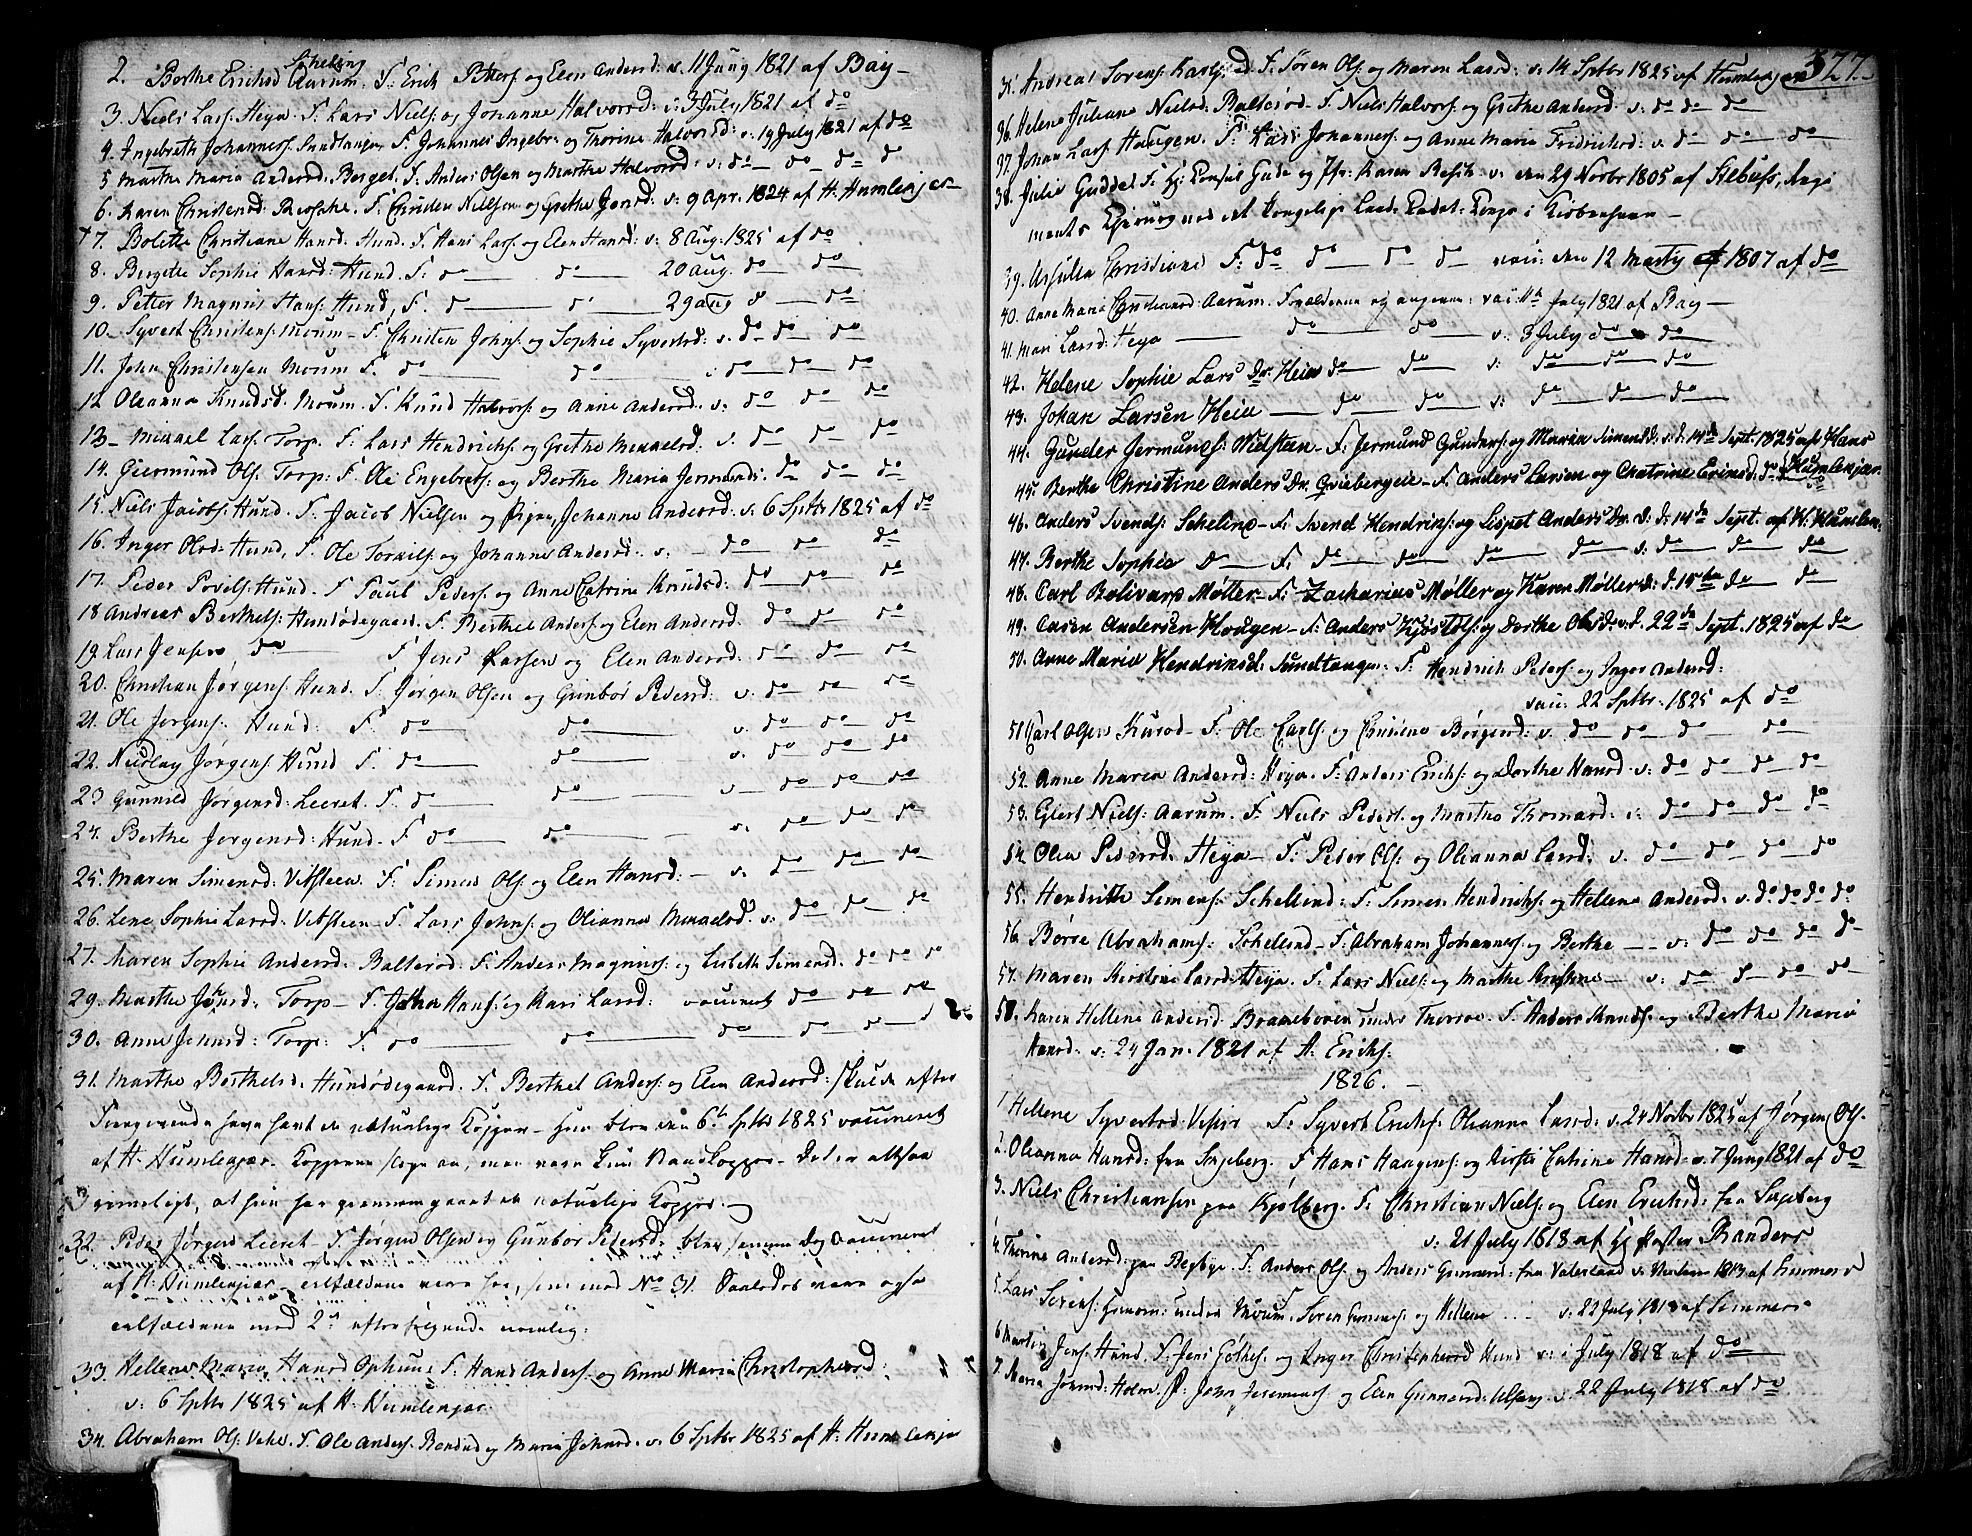 Scheling
2. Berthe Erichsd Aarum. F: Erich Peters: og Elen Andersd: v. 11 Juny 1821 af Bay –
3. Niels Lars: Heya. F: Lars Niels: og Johanne Halvorsd: v: 3 July 1821 af do
4. Ingebreth Johanness: Sundtangen F. Johannes Ingebr: og Thorine Halvorsd: v. 19 July 1821 af do
5 Marthe Maria Andersd: Berget. F. Anders Olsen og Marthe Halvorsd: v: do do do d
6. Karen Christensd: F. Christen Nielsen og Grethe Jensd: v: 9 Apr. 1824 af H: Humlekjær
7. Bolette Christiane Hansd: Hund. F. Hans Lars: og Elen Hansd: v: 8 Aug. 1825 af do
8. Bergithe Sophie Hansd: Hund. F: do do 20 Aug. do do
9. Petter Magnus Hans: Hund, F. do do 29 Aug d do
10. Syvert Christens: Moum – F. Christen Johns: og Sophie Syvertsd: v. do do do
11. John Christensen Moum F. do do v do do do
12 Oleanna Knudsd. Moum. F. Knud Halvors: og Anne Andersd: v: do do do
13 – Mikael Lars: Torp. F: Lars Hendrichs: og Grethe Mikkelsd: v. do do do
14. Giermund Ols: Torp: F. Ole Engebrets: og Berthe Maria Jermunds: do do do
15. Niels Jacobs: Hund. F. Jacob Nielsen og Johanne Andersd: v: 6 Sptbr 1825 af do
16. Inger Olsd: Hund, F. Ole Torkils: og Johanne Andersd: v: – do do do
17. Peder Povels: Hund. F Paul Peders: og Anne Catrine Knudsd: do do do
18 Andreas Berthels: Hundødegaard. F. Berthel Anders: og Elen Andersd: do do do
19. Lars Jensen do F Jens Larsen og Elen Andersd: do do do
20. Christian Jørgens: Hund. F. Jørgen Olsen og Gunbor Pedersd: v. do do do
21. Ole Jørgens: Hund: F. do do v. do do do
22. Nicolay Jørgens: Hund F. do do v. do do do
23 Gunnild Jørgensd: Leeret. F. do do v do do do
24. Berthe Jørgensd: Hund. F do do v: do do do
25. Maren Simensd: Vitsteen. F: Simen Ols: og Elen Hansd: – v: do do do
26. Lene Sophie Larsd: Vitsteen F. Lars Johns: og Olianna Mikkelsd: v: do do do
27. Maren Sophie Andersd. Balterød. F. Anders Magnus: og Lisbeth Simensd. do do do
29. Marthe Johnsd: Torp – F. John Hans: og Kari Larsd: vaccineret do do do
30. Anne Johnsd: Torp: F: do do do do do d
31. Marthe Berthelsd. Hundødegaard. F. Berthel Anders: og Elen Andersd: skulde efter
Foregivende have havt de naturlige Kopper – hun blev den 6t Sptbr 1825 vaccineret
af H. Humlekjær. Kopperne sloge an, men vare kun Vandkopper – Det er altsaa
rimeligt, at hun har gjennemgaaet de naturlige Kopper.
32. Peder Jørgens Leeret – F. Jørgen Olsen og Gunbor Pedersd: blev samme Dag vaccineret
af H. Humlekjær – tilfældene vare her, som med No 31. Saaledes vare ogsaa
tilfældene med 2de efterfølgende nemlig:
33. Hellene Maria Hansd Ophuus F. Hans Anders: og Anne Maria Christophersd:
v: 6 Sptbr 1825 af H. Humlekjær.
34. Abraham Ols: Vehe. F. Ole Anders. og Maria Johnsd: v: 6 Sptbr 1825 af H. Humlekjær
377.
35. Andreas Sørens: Karlsrud F. Søren Ols: og Maren Larsd: v: 14 Sptbr 1825 af Humlekjær
36. Helene Juliane Nielsd: Balterød – F. Niels Halvors: og Grethe Andersd: v: do do do
37. Johan Lars: Haugen. F: Lars Johannes: og Anne Maria Fridrichsd: v: do do do
38. Julie Gudde F. Hr: Consul Gude og Fr: Karen v: den 29 Novbr 1805 af Regi
ments Chirurg ved det kongelige Land Cadet-Corps i Kiøbenhavn –
39. Christiane F: do do do do vacc: den 12 Marty 1807 af do
40. Anne Maria Christiansd: Aarum. Forældrene ey angivne: vac: 11te July 1821 af Bay –
41. Mari Larsd: Heya do do v: 3 July do do
42. Helene Sophie Lars Dr. Heia do do v: do do do
43. Johan Larsen Heia do do v: do do do
44. Gunder Jermunds: Widsteen – F: Jermund Gunders: og Maria Simensd: v. d: 14de Sept: 1825 af Hans
45. Berthe Christine Anders Dr. Griebergeie – F. Anders Larsen og Chatrine Erimsd: do do Humlekjær
46. Anders Svends: Scheline – F: Svend Hendriks: og Lispet Anders Dr. v: d: 14de Sept. af H. Humlek.
47. Berthe Sophia D F: do do do do v: do do do
48. Carl Bolivars Møller – F: Zacharias Møller og Karen Møller v: d. 15de do do
49. Caren Andersen Hougen – F: Anders Kjøstols: og Dorthe Ols D: v. d. 22de Sept. 1825 af do
50. Anne Maria Hendriksd. Sundtangen: F: Hendrich Peders: og Inger Andersd:
vac: 22 Sptbr: 1825 af do
51 Carl Olsen Kurød – F: Ole Carls: og Børgersd: v. do do do do
52. Anne Maria Andersd: Heya. F: Anders Erichs: og Dorthe Hansd: v: do do do do
53. Elert Niels: Aarum. F. Niels Peders: og Marthe Thomasd: v: do do do do
54. Olea Pedersd: Heya – F: Peder Ols: og Olianna Larsd: v. do do do do
55. Hendrich Simens: Schellind: F: Simen Hendrichs: og Hellene Andersd: v. do do do do
56. Børre Abrahams: Schelind – F: Abraham Johannes: og Berthe – – v: do do do do
57. Maren Kirstine Larsd: Heya. F. Lars Niels: og Marthe – v: do d do do
58. Karen Hellene Andersd: under Thorsøe. F. Anders og Berthe Maria
Hansd: v: 24 Jan. 1821 af A: Erichs:
1826. –
1 Hellene Syvertsd: F: Syvert Erichs: Olianna Larsd: v. 24 Novbr 1825 af Jørgen Ols.
2. Olianna Hansd: fra Ingeberg. F Hans Haagens: og Kirsti Catrine Hansd: v. 7 Juny 1821 af do
3. Niels Christiansen paa Kjølberg. F. Christian Niels: og Elen Erichsd: fra
v: 21 July 1818 af Hr Paster Randers
4. Therine Andersd: paa Begbye. F. Anders Ols: og Anders fra Vaterland v: 1813 af Simmers
5. Lars Sørens: under Moum. Søren og Hellene . . . v: 22 July 1818 af Simmers
6 Jens: Hund. F. Jens og Inger Christophersd Hund v: July 1818 af do
7. Maria Johnsd: Holm. F: John og Elen Gunnersd: v. 22 July 1818 af do